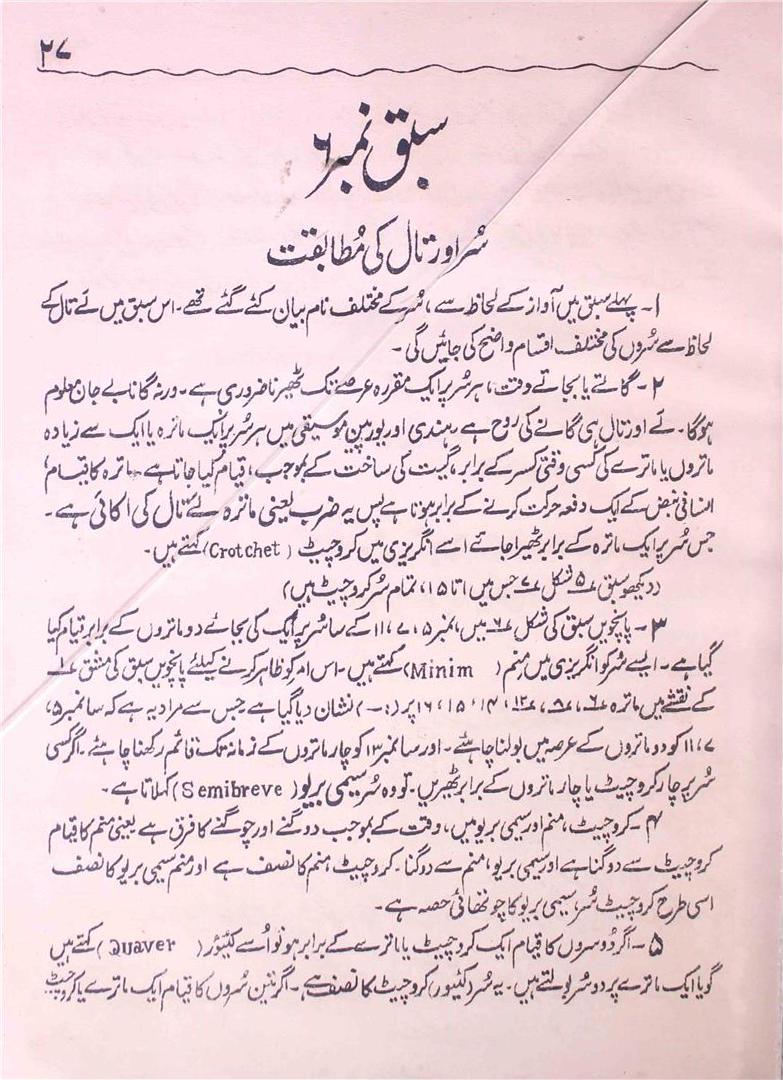 ۲۷
سبق نمبر ۶
سُر اور تال کی مُطابقت
۱- پہلے سبق میں آواز کے لحاظ سے، سُر کے مختلف نام بیان کئے گئے تھے۔ اس سبق میں لَے تال کے
لحاظ سے سُروں کی مختلف اقسام واضح کی جائیں گی۔
۲- گاتے یا بجاتے وقت، ہر سُر پر ایک مقررہ عرصے تک ٹھیرنا ضروری ہے۔ ورنہ گانا بے جان معلوم
ہوگا۔ لَے اور تال ہی گانے کی روح ہے ہندی اور یورپین موسیقی میں ہر سُر پر ایک ماترہ یا ایک سے زیادہ
ماتروں یا ماترے کی کسی وقتی کسر کے برابر، گیت کی ساخت کے بموجب، قیام کیا جاتا ہے۔ ماترہ کا قیام،
انسانی نبض کے ایک دفعہ حرکت کرنے کے برابر ہوتا ہے پس یہ ضرب یعنی ماترہ لَے تال کی اکائی ہے۔
جس سُر پر ایک ماترہ کے برابر ٹھیرا جائے اسے انگریزی میں کروچیٹ (Crotchet) کہتے ہیں۔
(دیکھو سبق ۵ شکل ۷ جس میں ۱ تا ۱۵، تمام سُر کروچیٹ ہیں)
۳- پانچویں سبق کی شکل ۶ میں، نمبر ۵، ۷، ۱۱ کے سا سُر پر ایک کی بجائے دو ماتروں کے برابر قیام کیا
گیا ہے۔ ایسے سُر کو انگریزی میں منم (Minim) کہتے ہیں۔ اس امر کو ظاہر کرنے کیلئے پانچویں سبق کی مشق ۱
کے نقشے میں ماترہ ۶، ۸، ۱۲، ۱۴، ۱۵، ۱۶ پر (:-) نشان دیا گیا ہے جس سے مراد یہ ہے کہ سا نمبر ۵،
۷، ۱۱ کو دو ماتروں کے عرصہ میں بولنا چاہئے۔ اور سا نمبر ۱۳ کو چار ماتروں کے زمانہ تک قائم رکھنا چاہئے۔ اگر کسی
سُر پر چار کروچیٹ یا چار ماتروں کے برابر ٹھیریں۔ تو وہ سُر سیمی بریو (Semibreve) کہلاتا ہے۔
۴- کروچیٹ، منم اور سیمی بریو میں، وقت کے بموجب دوگنے اور چوگنے کا فرق ہے یعنی منم کا قیام
کروچیٹ سے دوگنا ہے اور سیمی بریو، منم سے دوگنا۔ کروچیٹ منم کا نصف ہے اور منم سیمی بریو کا نصف
اسی طرح کروچیٹ سُر، سیمی بریو کا چوتھائی حصہ ہے۔
۵- اگر دو سروں کا قیام ایک کروچیٹ یا ماترے کے برابر ہو تو اُسے کئیوَر (Quaver) کہتے ہیں
گویا ایک ماترے پر دو سر بولتے ہیں۔ یہ سُر (کئیور) کروچیٹ کا نصف ہے۔ اگر تین سُروں کا قیام ایک ماترے یا کروچیٹ